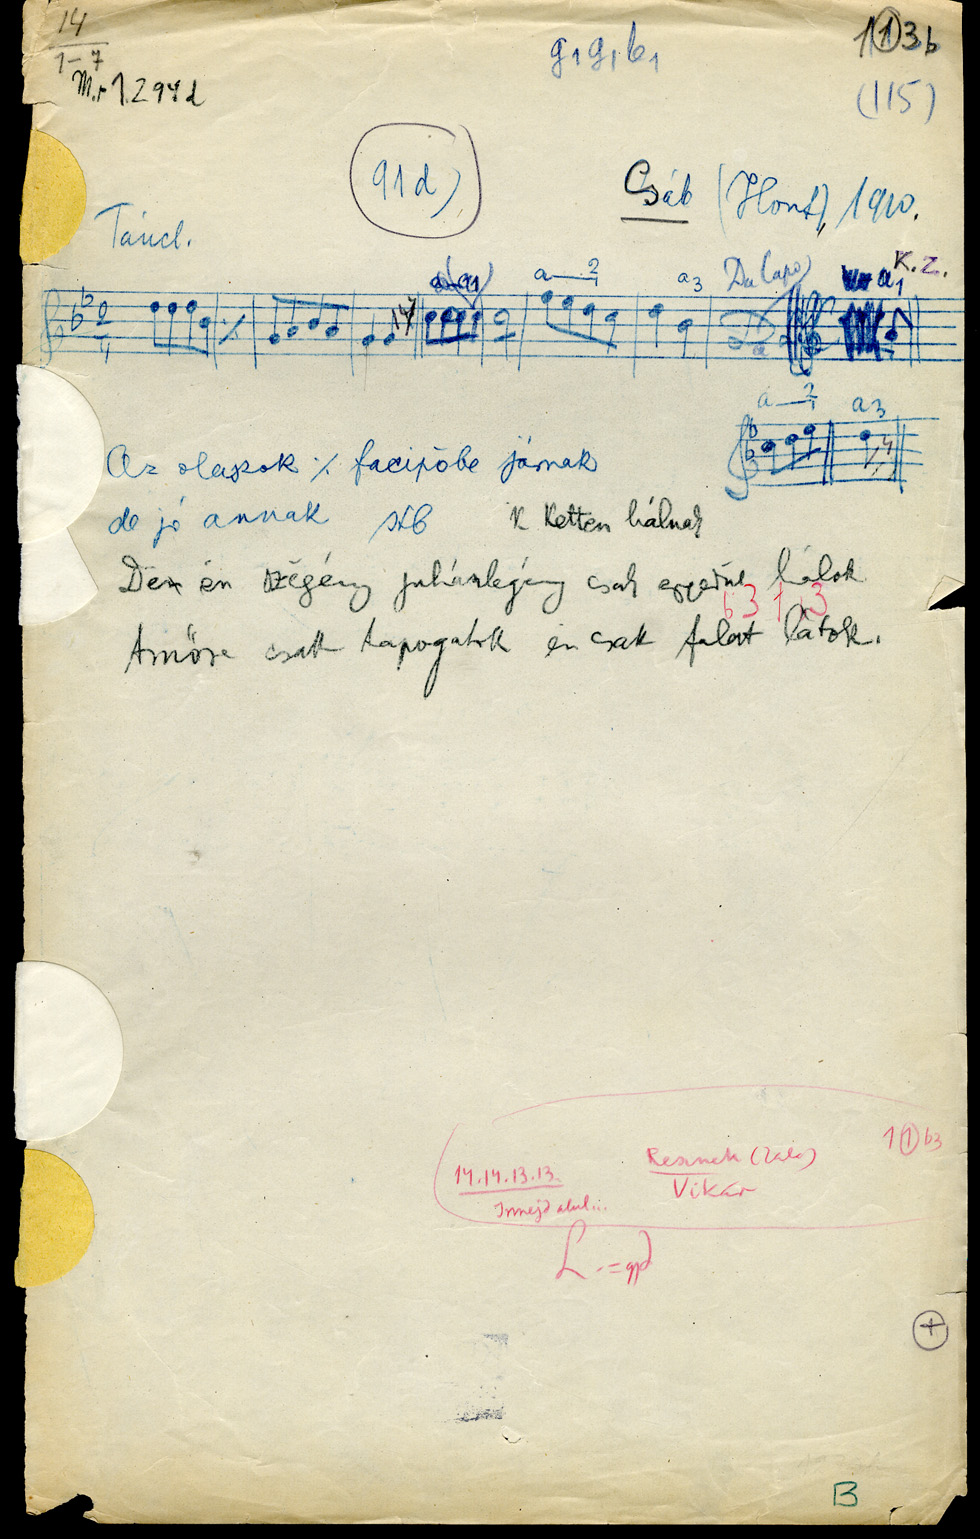 14
1-7
M.F 1.297d
g₁ g₁ b₁
1①3b
(115)
91d)
Csáb (Hont), 1910.
Táncl.
a 2 a3 Da Capo a1 K.Z.
a 2 a3
Az olaszok ./. facipőbe járnak
de jó annak stb K Ketten hálnak
De én szegény juhászlegény csak egyedül hálok
Amőre csak tapogatok én csak falat látok.
63 1 3
14.14.13.13.
Resznek (Zala)
Vikár
1①b3
L
+
B